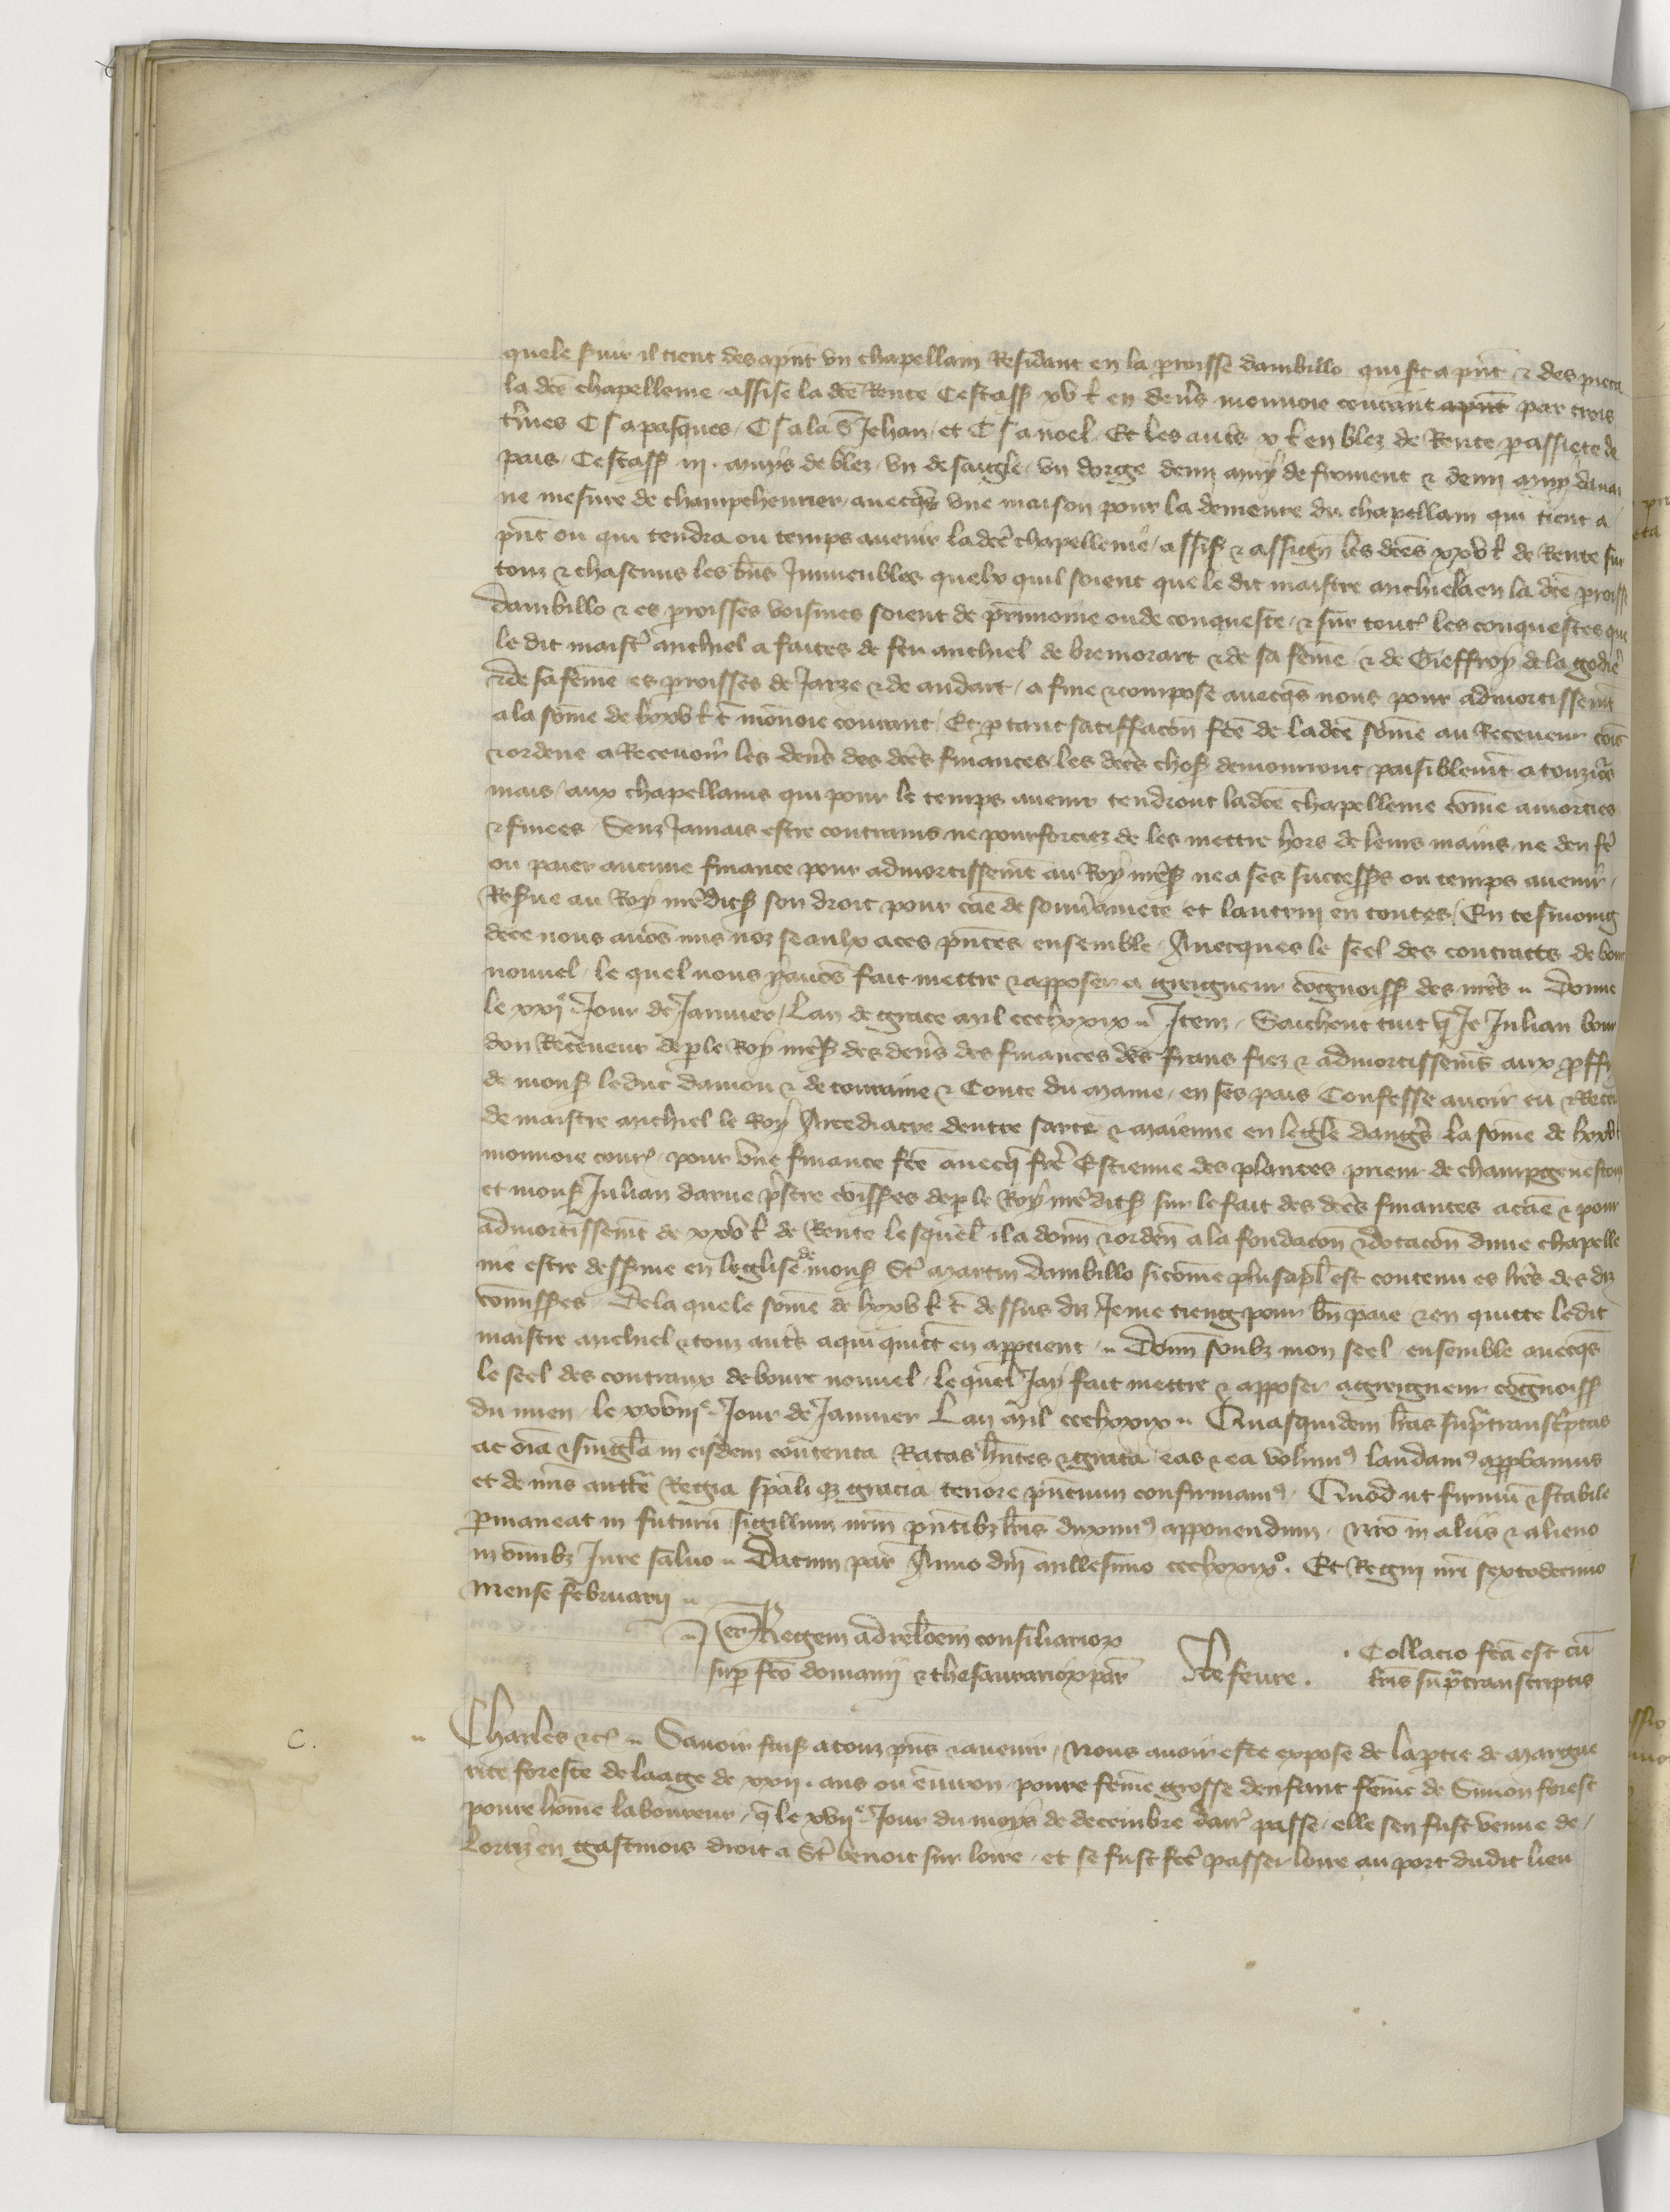 quele finir il tient des apñt vn chapellam Residant en la proisse dambillo qui est a pñt & des
la dce chapellenie assise la dce Rente Cestass xv ł en deñs monnoie courant apñt par trois
t̃mes C s a pasques C s a la S Jehan et C s a noel Et les auts x ł en blez de Rente passiete de
pais Cestass iij muys de blez vn de saigle vn dorge demi muy de froment & demi muy dauai
ne mesure de champchenrier auecqs vne maison pour la demeure du chapellam qui tient a
pñt ou qui tendra ou temps auenir ladce chapellenie assis & assign les dces xxv ł de Rente sur
touz & chascuns les bñs Immeubles quelx quil soient que le dit maistre anchiel a en la dce proisse
dambillo & es proisses voisines soient de prïmoine ou de conqueste & sur tout les conquestes que
le dit maistr anchiel a faites de feu anchiel de bremorart & de sa feme & de Gieffroy de la godier
& de sa feme es proisses de Jarze & de andart a fine & compose auecqs nous pour admortissemt
a la some de lxxv ł t monoie courant Et p tant satiffacon fce de ladce some au Receueur cois
& ordene a Receuoir les deñs des dces finances les dces chos demourront paisiblemt a touziors
mais aux chapellains qui pour le temps auenir tendront ladce chapellenie come amorties
& finees Senz Jamais estre contrains ne pourforciez de les mettre hors de leurs mains ne den fe
ou paier aucune finance pour admortissemt au Roy mes ne a ses success ou temps auenir
Resue au Roy mr dits son droit pour cae de souuainete et lautruy en toutes En tesmoing
dece nous auos mis noz seaulx a ces pñtes ensemble Auecques le seel des contratts de bour
nouuel le quel nous y auos fait mettre & apposer a greigneur cognoiss des nres Donne
le xxje Jour de Januier Lan de grace mil ccclxxix Item Saichent tuit q Je Julian bour
don Receueur dep le Roy mes des deñs des finances des frans fiez & admortissemts aux proffiz
de mons le duc damou & de touraine & Conte du maine en ses pais Confesse auoir eu & Receu
de maistre anchiel le Roy Arcediacre dentre sarte & maienne en legle dangs la some de lxxv ł
monnoie cour pour vne finance fce auecq fre Estienne des plantes prieur de champgeneston
et mons Julian darue pstre coisses dep le Roy mr dits sur le fait des dces finances a cae & pour
admortissemt de xxv ł de Rente lesquel il a donn & orden a la fondacon & dotacon dune chapelle
nie estre desseruie en leglise de mons St martin dambillo si come plus apl est contenu es lres des diz
comisses De la quele some de lxxv ł t dessus diz Je me tieng pour bñ paie & en quitte ledit
maistre anchiel & touz auts a qui quitt en apptient Donn soubz mon seel ensemble auecqs
le seel des contraux de bourc nouuel lequel Jay fait mettre & apposer a greigneur cognoiss
du mien le xxviije Jour de Januier Lan mil ccclxxix Quasquidem lras supratranscriptas
ac oia & singla in eisdem contenta Ratas hñtes & grata eas & ea volum laudam approbamus
et de nris auttre Regia spali qz gracia tenore pñcium confirmam Quod ut firmu & stabile
pmaneat in futuru sigillum nrm pñtibz lris duxim apponendum Nro in aliis & alieno
in omibz Jure saluo Datum par Anno dni millesimo ccclxxixo Et Regni nri sextodecimo
Mense februarij
Per Regem ad relcoem consiliariorx
sup fco domanij & thesaurariorx par Lefeure
Collacio fca est cu
lris supratranscriptis
C.
Charles &c Sauoir fais a touz pns & auenir Nous auoir este expose de la ptie de margue
rite foreste de laage de xxij ans ou enuiron poure feme grosse denfant feme de Simon forest
poure home laboureur q le xvije Jour du moys de decembre darr passe elle sen fust venue de
Lorriz en gastinois droit a St benoit sur loire et se fust fce passer loire au port dudit lieu